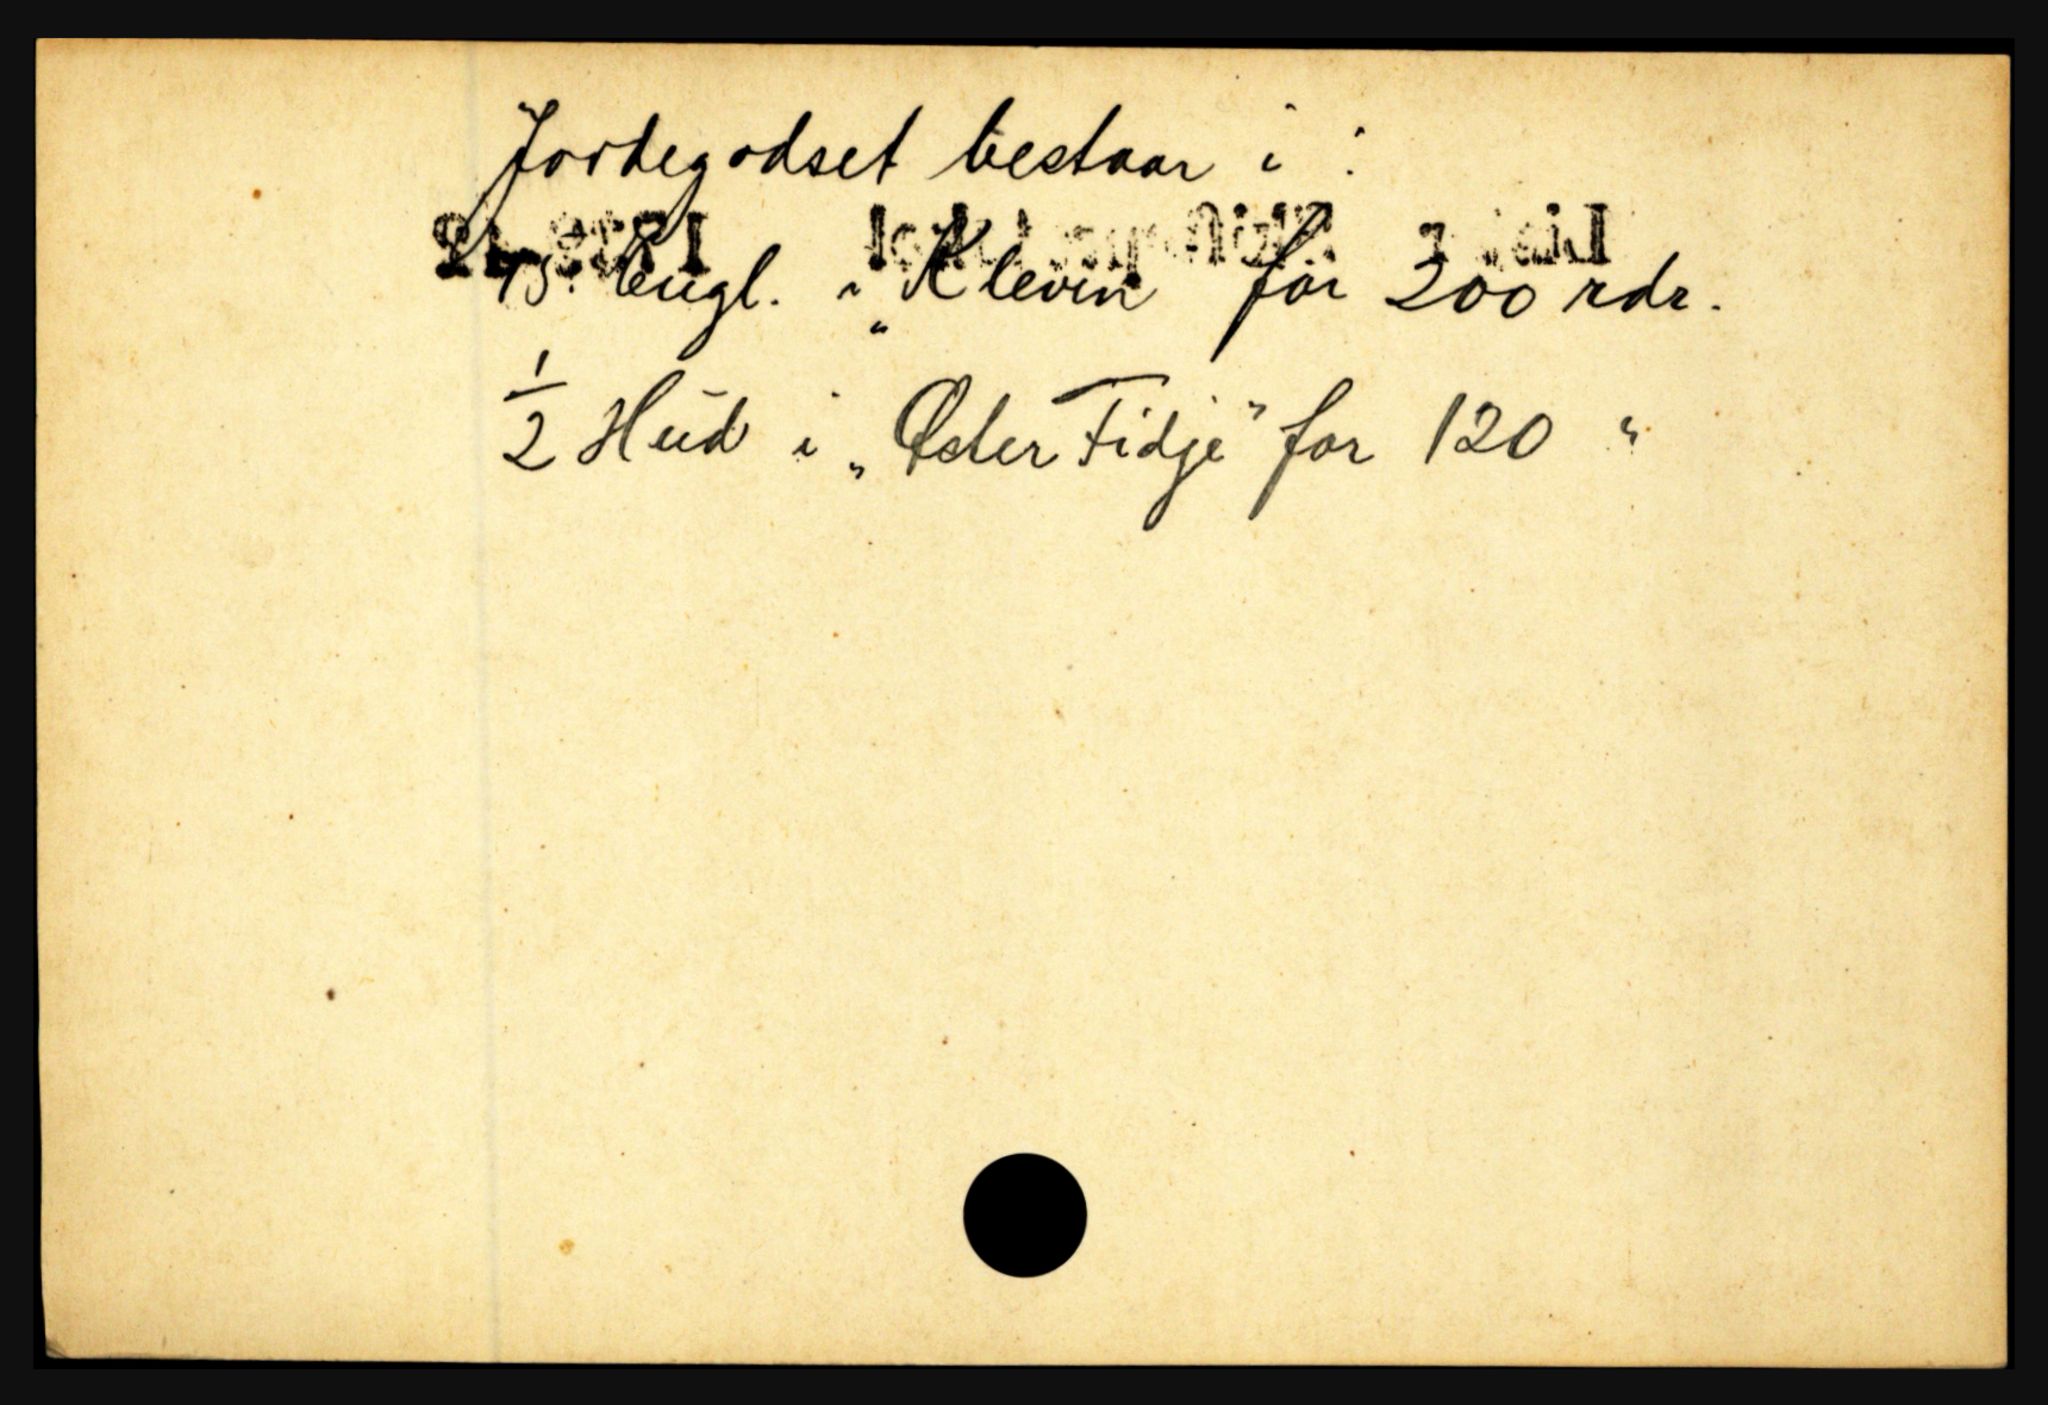 Jordegodset bestaar i :
Engl. i „Klevin" for 200 rdr.
1/2 Hud i „Øster Tidje" for 120 "